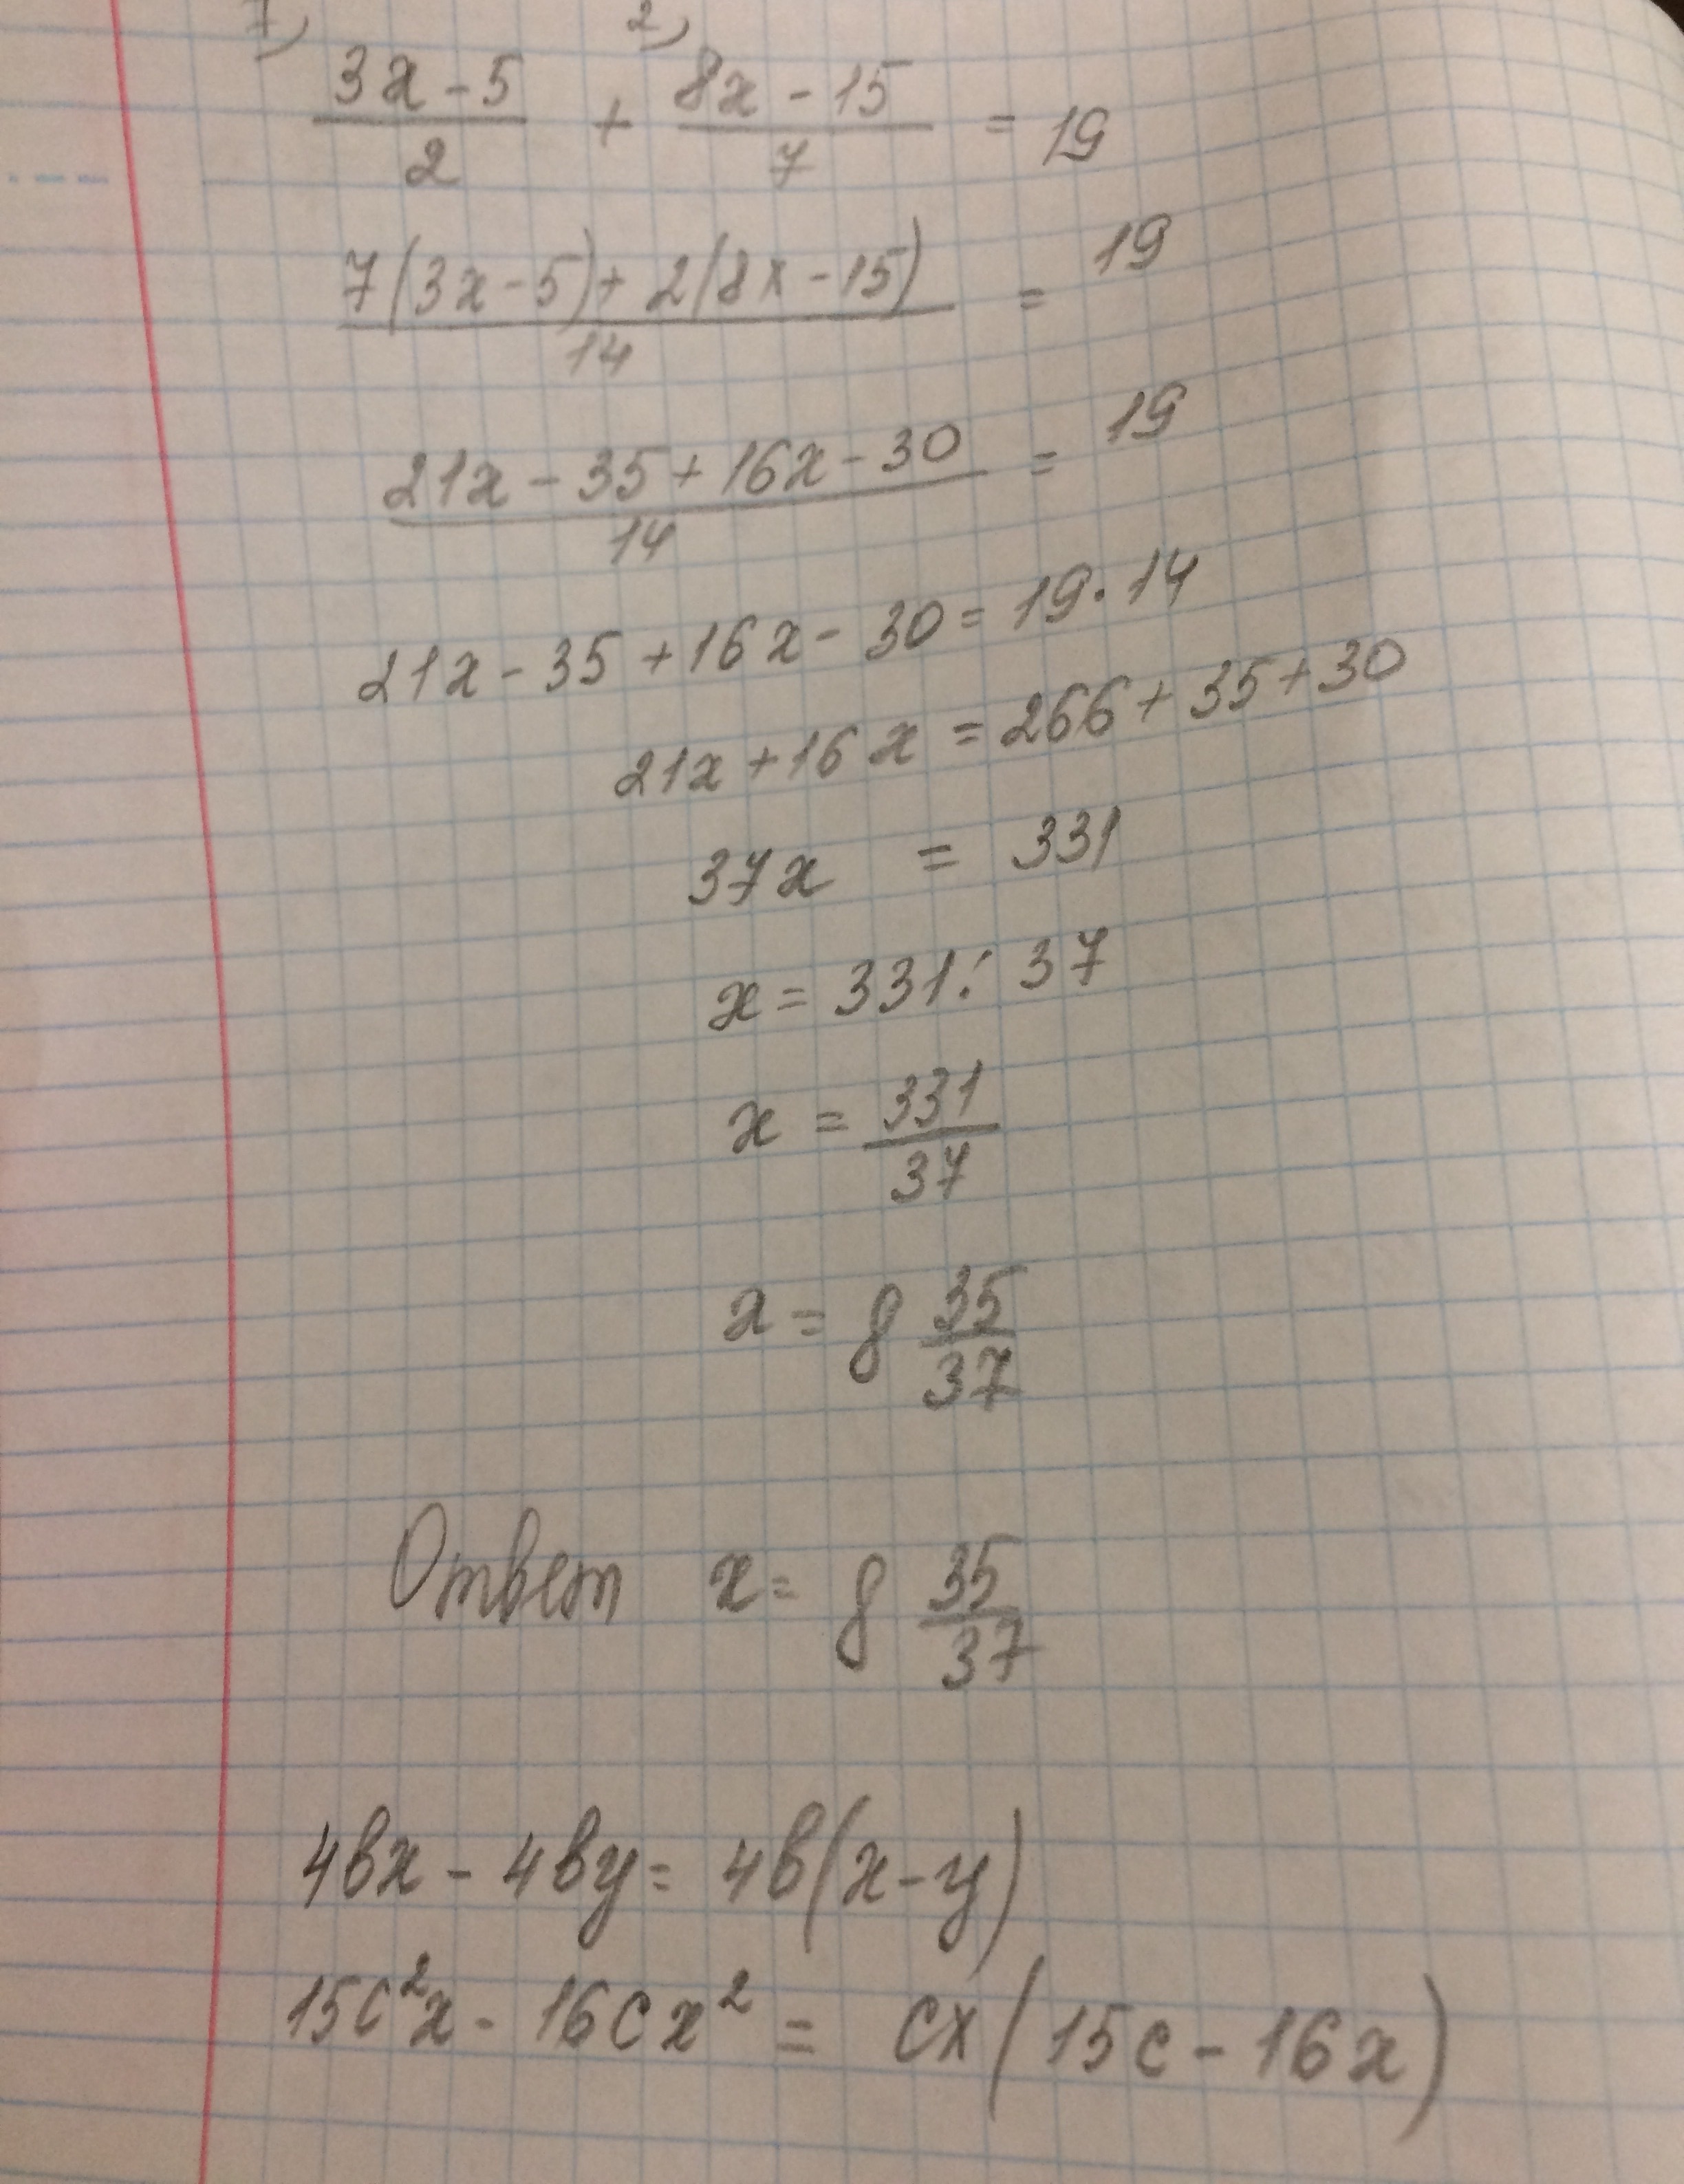 7) 2)
3x - 5 / 2 + 8x - 15 / 7 = 19
7(3x - 5) + 2(8x - 15) / 14 = 19
21x - 35 + 16x - 30 / 14 = 19
21x - 35 + 16x - 30 = 19 · 14
21x + 16x = 266 + 35 + 30
37x = 331
x = 331 : 37
x = 331 / 37
x = 8 35/37
Ответ x = 8 35/37
4вx - 4вy = 4в(x - y)
15c²x - 16cx² = cx(15c - 16x)